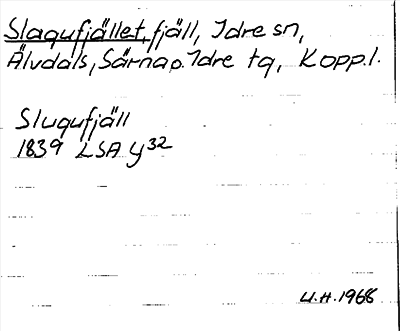 Slagufjället, fjäll, Idre sn,
Älvdals, Särna o. Idre tg, Kopp. l.
Slugufjäll
1839 LSA y32
U.H. 1966